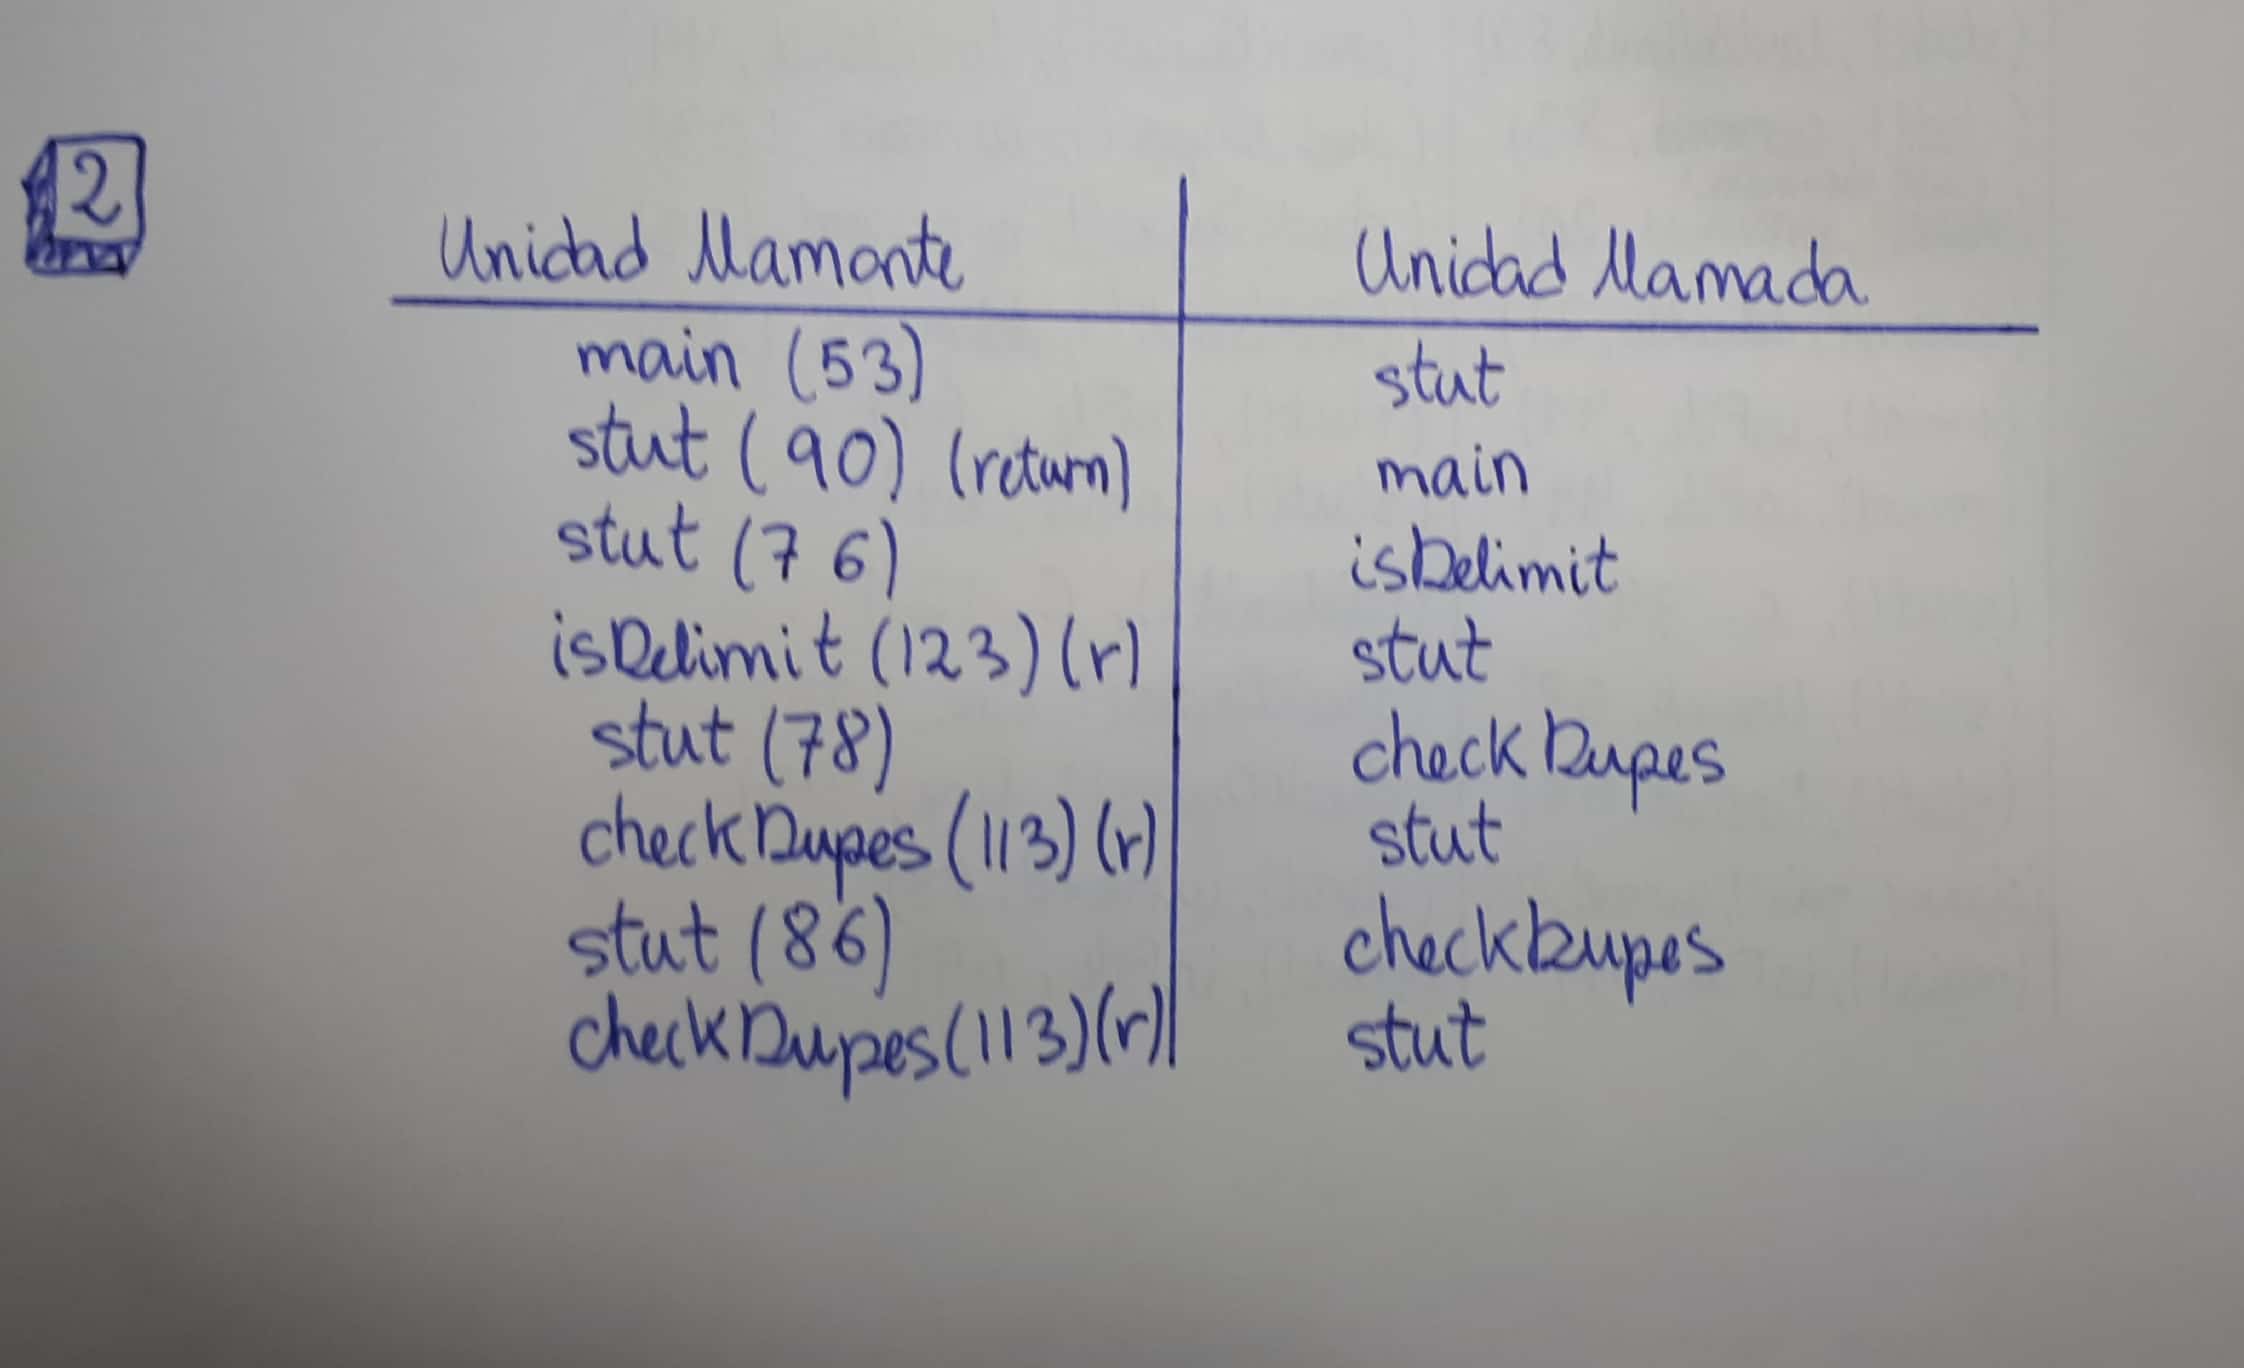 2
Unidad llamante | Unidad llamada
main (53) | stut
stut (90) (return) | main
stut (76) | isDelimit
isDelimit (123) (r) | stut
stut (78) | checkDupes
checkDupes (113) (r) | stut
stut (86) | checkDupes
checkDupes (113) (r) | stut